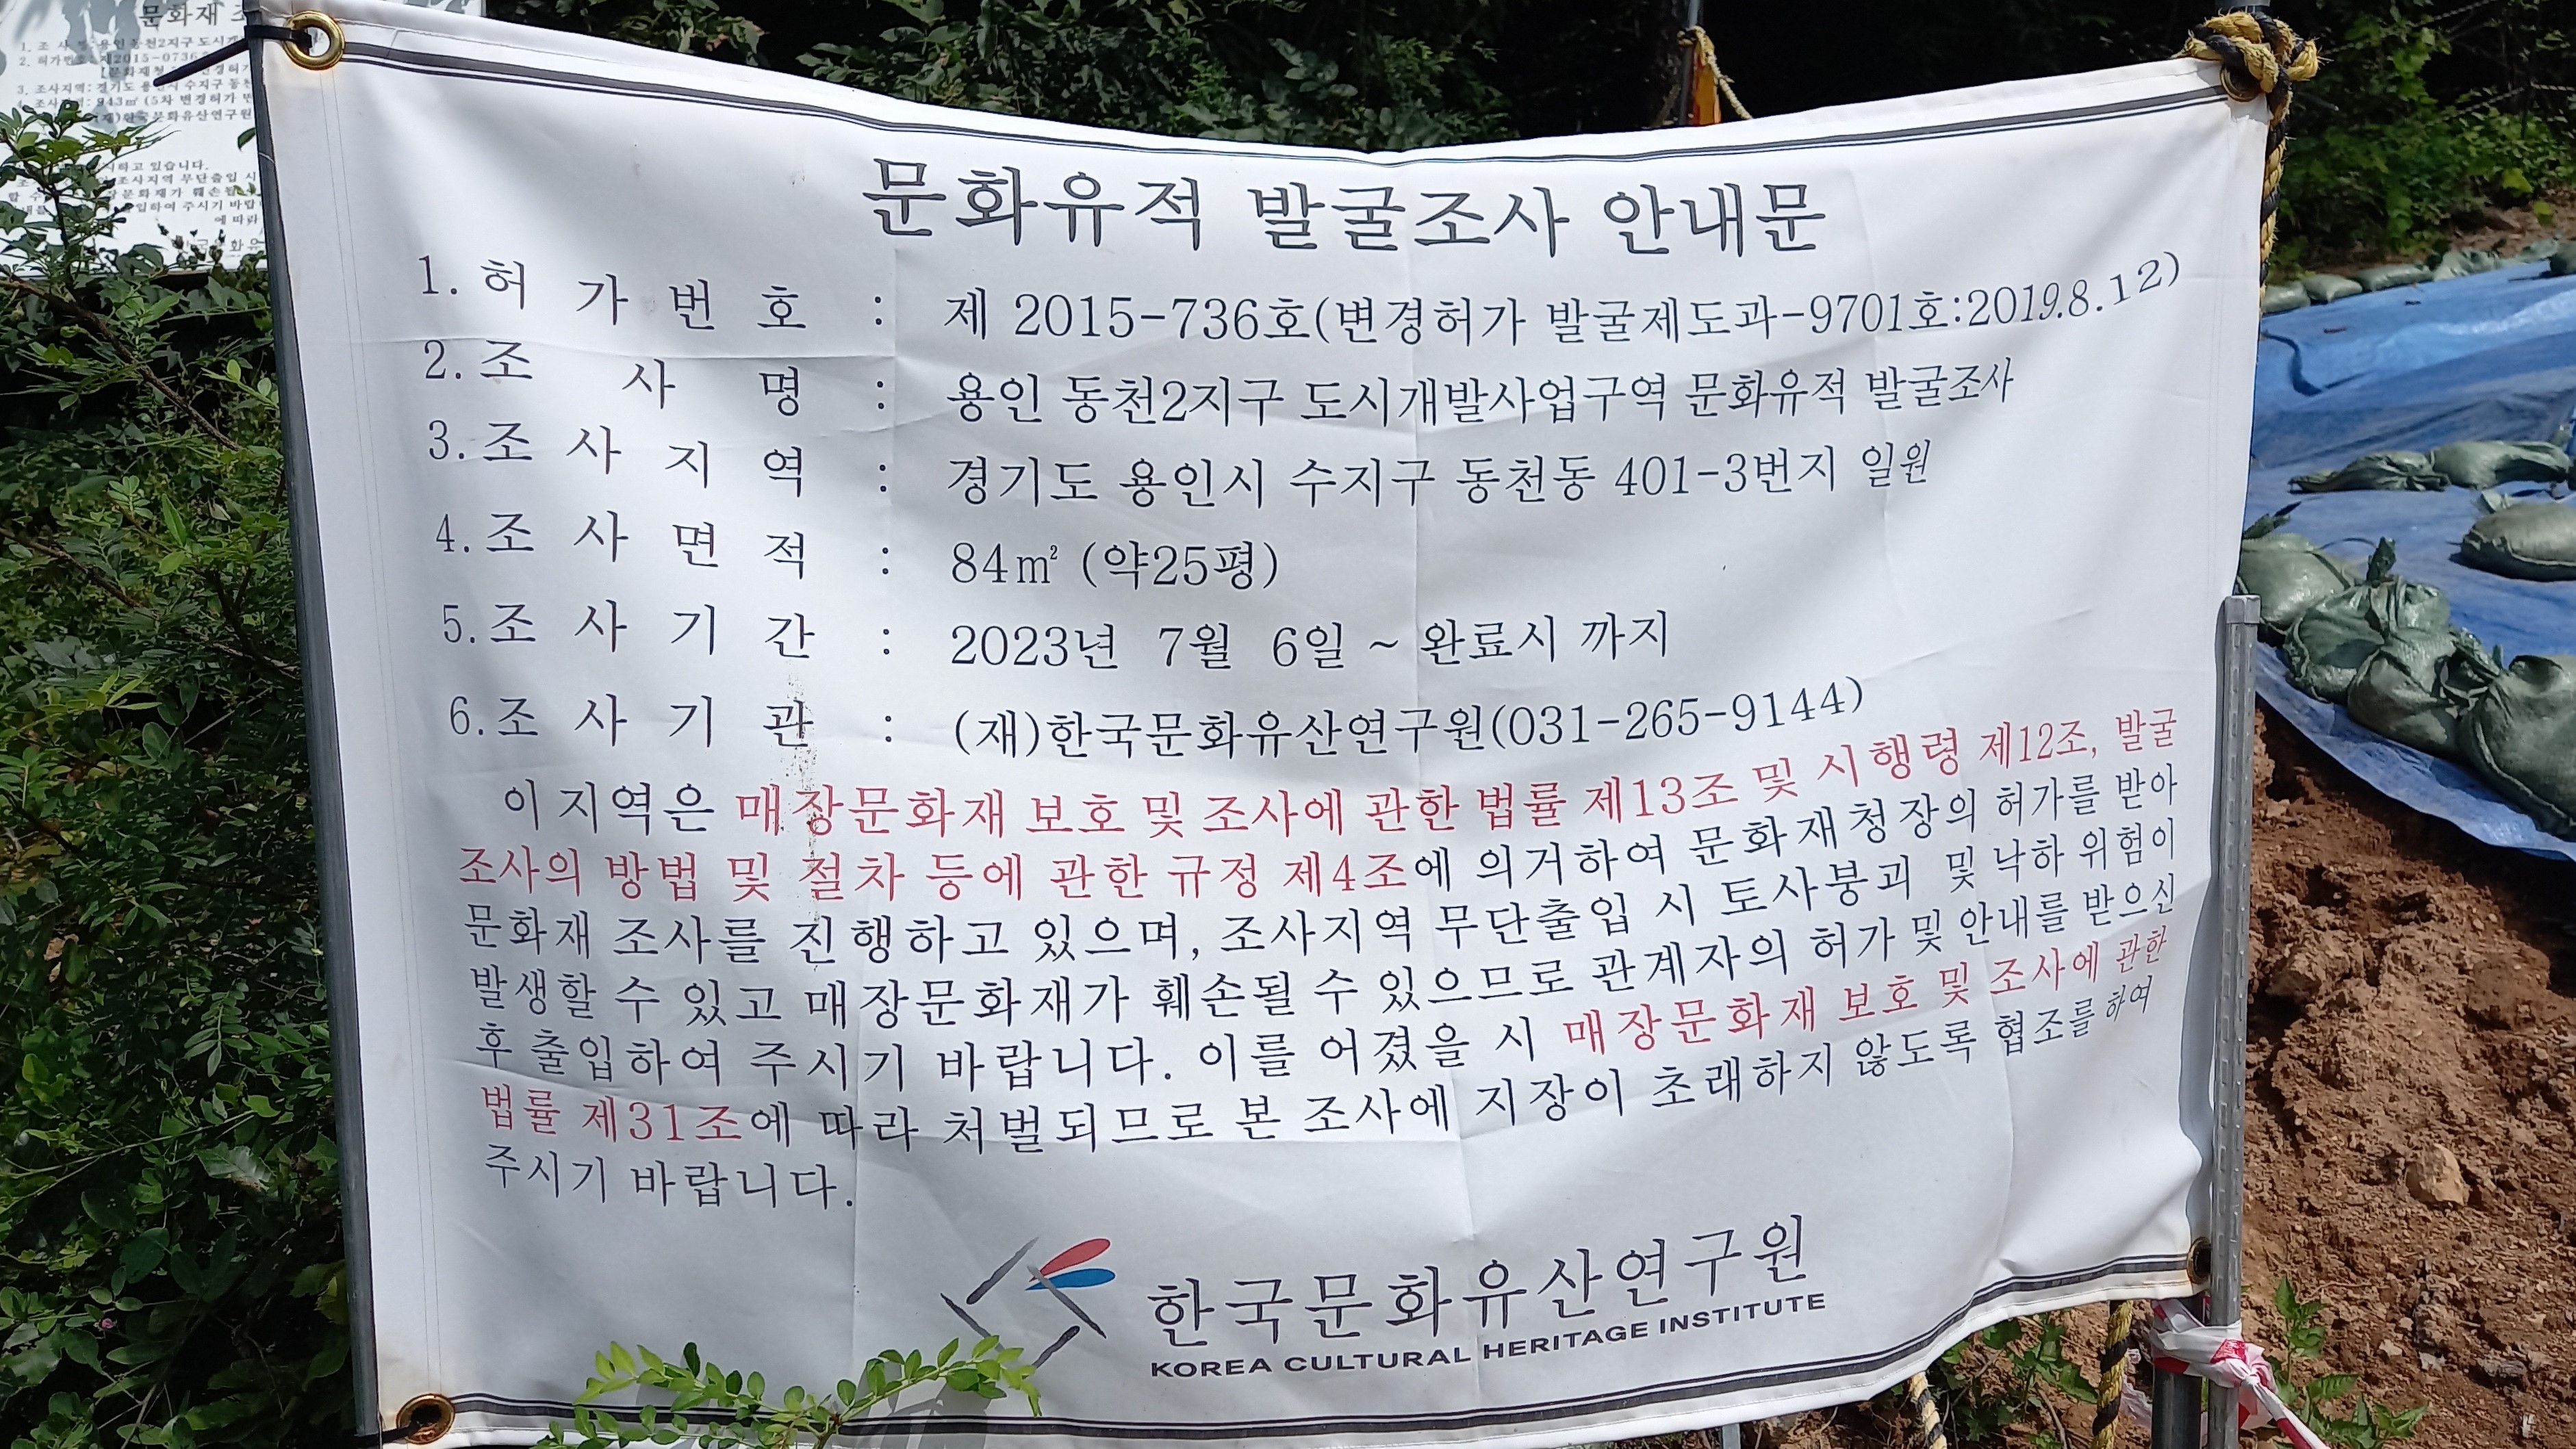 문화재 조
1. 조 사 명: 용인 동천2지구 도시개
2. 허가번호: 제2015-0736
3. 조사지역: 경기도 용인시 수지구 동천
943㎡ (5차 변경허가 면
(재)한국문화유산연구원
하고 있습니다.
조사지역 무단출입 시
문화재가 훼손될
입하여 주시기 바랍
에 따라
문화유적 발굴조사 안내문
1. 허 가 번 호 : 제 2015-736호(변경허가 발굴제도과-9701호:2019.8.12)
2. 조 사 명 : 용인 동천2지구 도시개발사업구역 문화유적 발굴조사
3. 조 사 지 역 : 경기도 용인시 수지구 동천동 401-3번지 일원
4. 조 사 면 적 : 84㎡ (약25평)
5. 조 사 기 간 : 2023년 7월 6일 ~ 완료시 까지
6. 조 사 기 관 : (재)한국문화유산연구원(031-265-9144)
이 지역은 매장문화재 보호 및 조사에 관한 법률 제13조 및 시행령 제12조, 발굴
조사의 방법 및 절차 등에 관한 규정 제4조에 의거하여 문화재청장의 허가를 받아
문화재 조사를 진행하고 있으며, 조사지역 무단출입 시 토사붕괴 및 낙하 위험이
발생할 수 있고 매장문화재가 훼손될 수 있으므로 관계자의 허가 및 안내를 받으신
후 출입하여 주시기 바랍니다. 이를 어겼을 시 매장문화재 보호 및 조사에 관한
법률 제31조에 따라 처벌되므로 본 조사에 지장이 초래하지 않도록 협조를 하여
주시기 바랍니다.
한국문화유산연구원
KOREA CULTURAL HERITAGE INSTITUTE